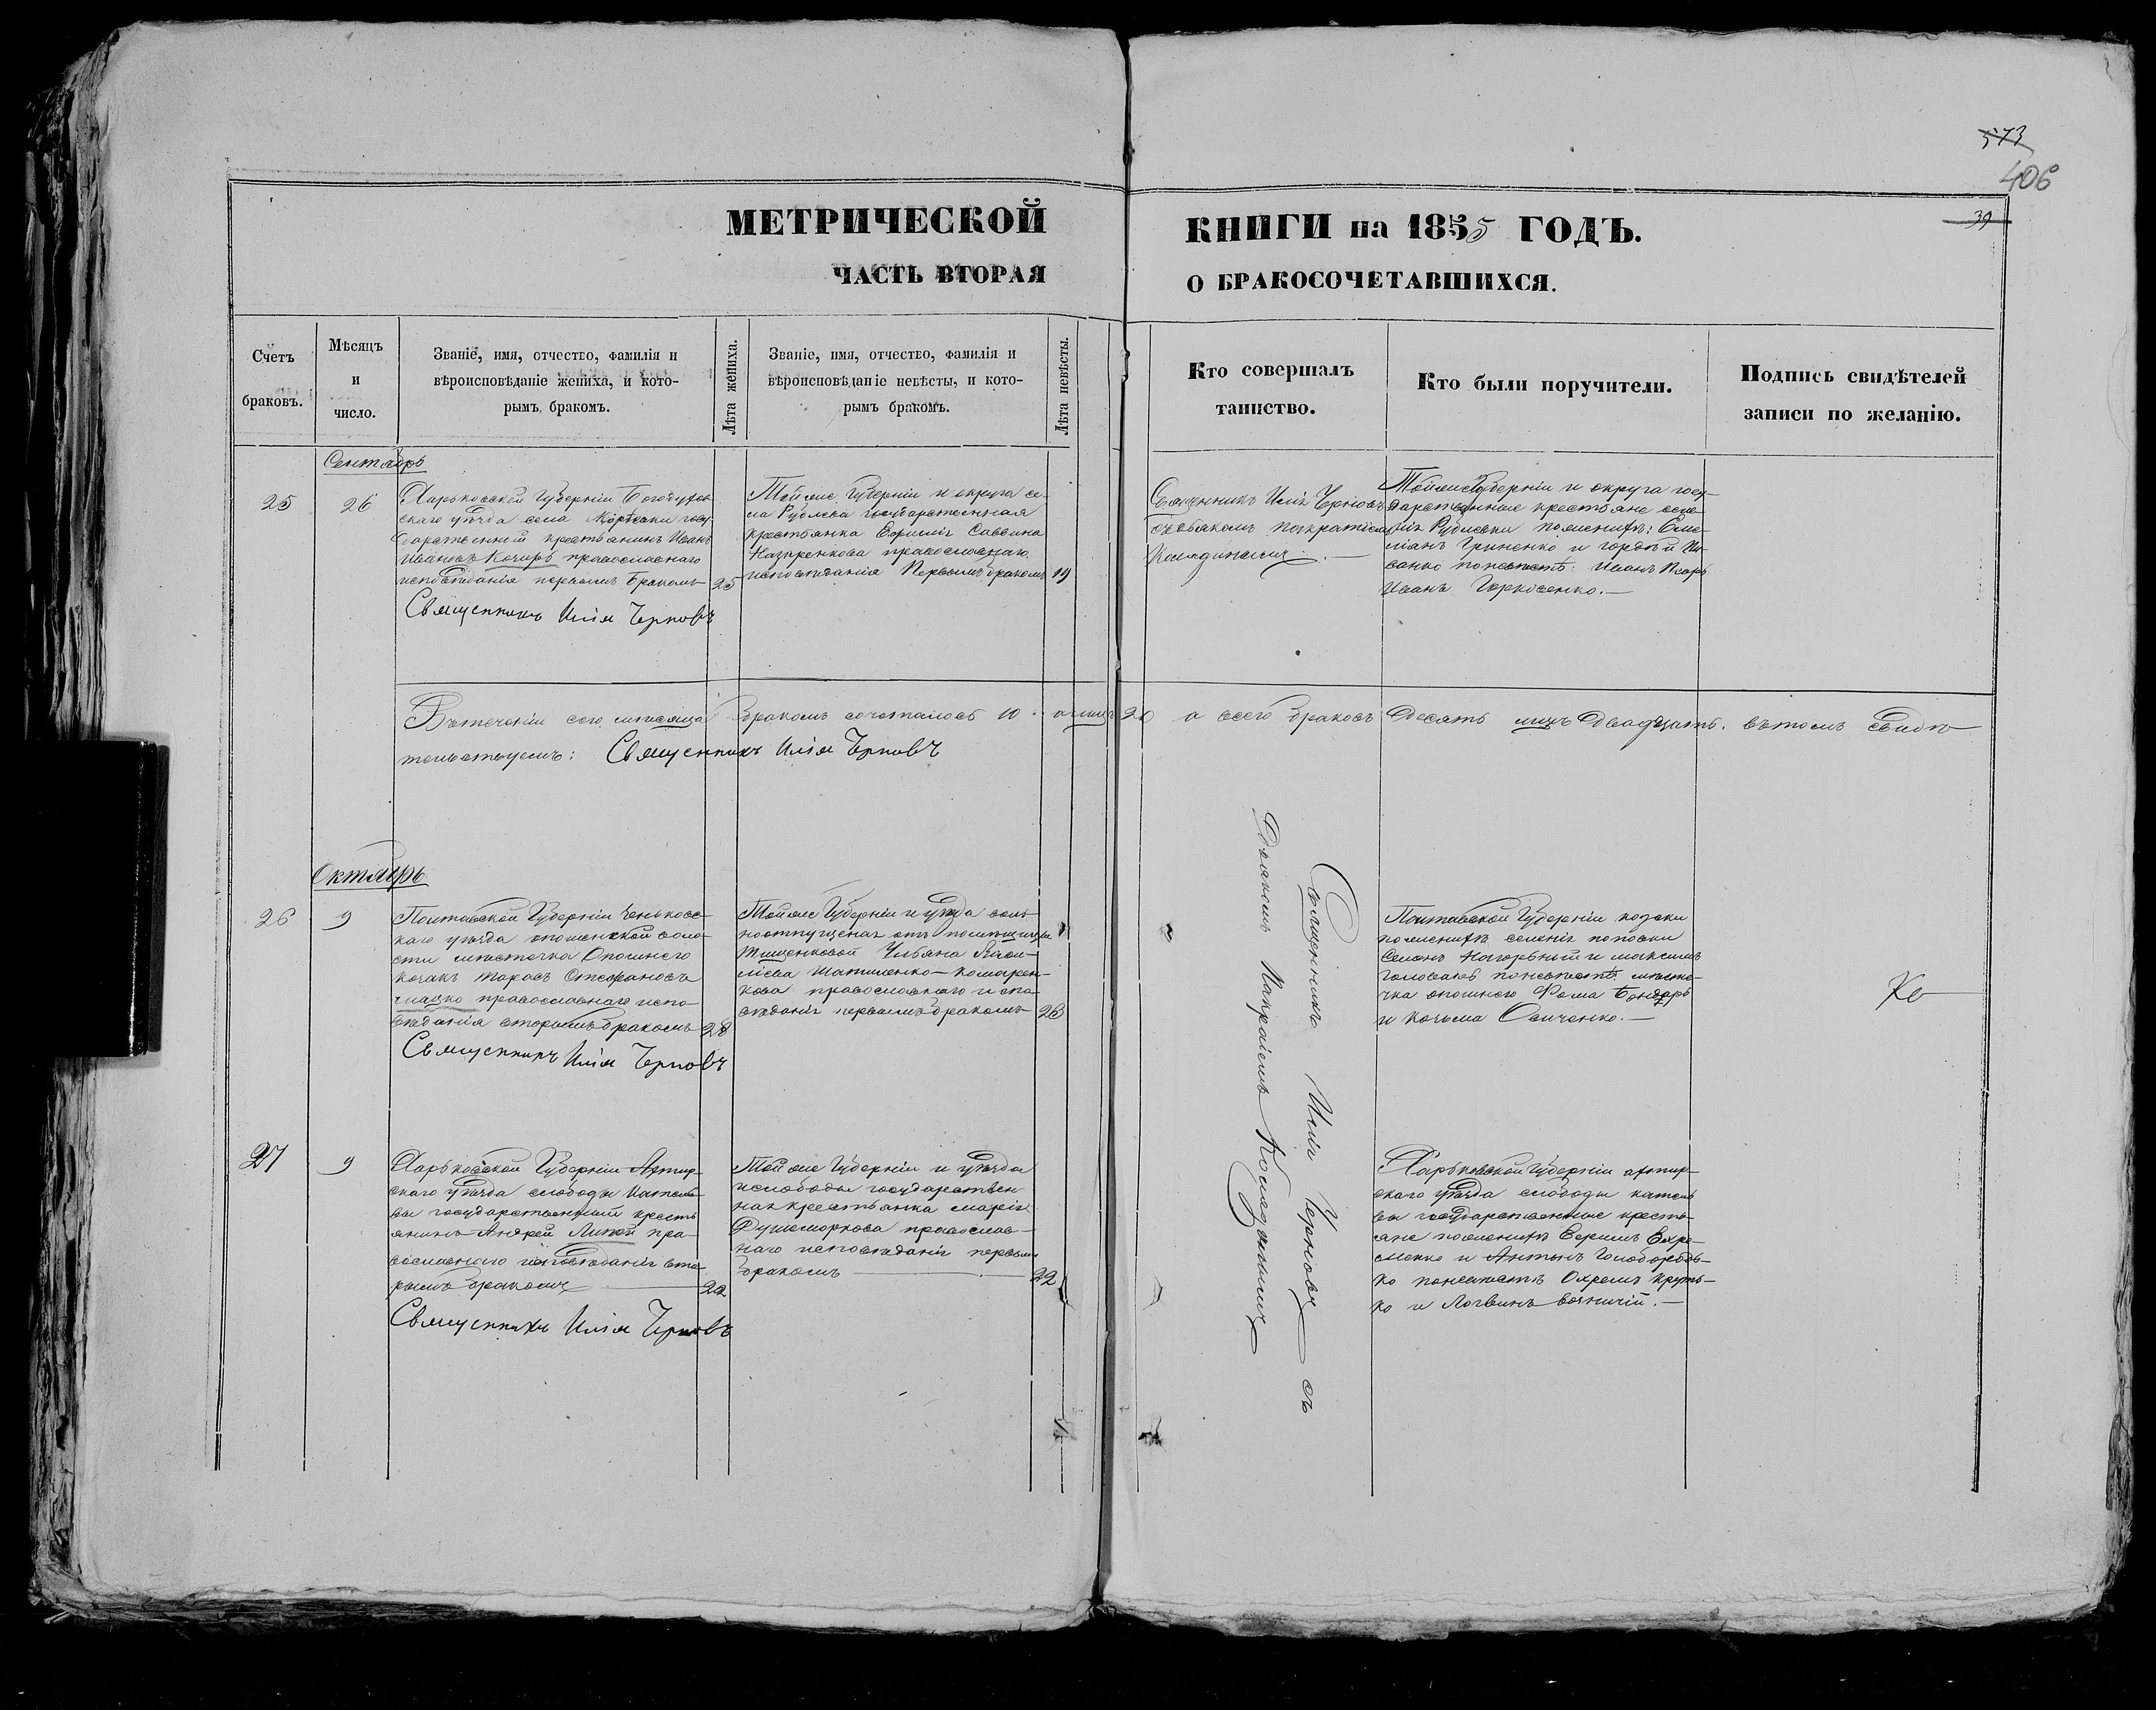 573
406
39
МЕТРИЧЕСКОЙ
КНИГИ на 1855 ГОДЪ.
ЧАСТЬ ВТОРАЯ
О БРАКОСОЧЕТАВШИХСЯ.
Счетъ
браковъ.
Мѣсяцъ
и
число.
Званіе, имя, отчество, фамилія и
вѣроисповѣданіе жениха, и кото-
рымъ бракомъ.
Лѣта жениха.
Званіе, имя, отчество, фамилія и
вѣроисповѣданіе невѣсты, и кото-
рымъ бракомъ.
Лѣта невѣсты.
Кто совершалъ
таинство.
Кто были поручители.
Подпись свидѣтелей
записи по желанію.
Сентябрь
25
26
Харьковской Губерніи Богодухов
скаго уѣзда села госу-
дарственный крестьянинъ Иванъ
Ивановъ Кочиръ православнаго
исповѣданія первымъ бракомъ
25
Священникъ Илія Черновъ
Тойже Губерніи и округа се-
ла Рублевки государственная
крестьянка Саввина
Назаренкова православнаго
исповѣданія Первымъ бракомъ
19
Священникъ Иліа Черновъ
съ дьякомъ
Колядинымъ.
Тойже Губерніи и округа госу-
дарственные крестьяне села
Рублевки по женихѣ: Еме-
ліанъ Гриненко и Гордѣй Пи-
санко по невѣстѣ: Иванъ Писарь
Иванъ
Въ теченіи сего мѣсяца бракомъ сочеталось 10. а лицъ 20 а всего браковъ десять лицъ двадцать. въ томъ свидѣ
тельствуемъ: Священникъ Илія Черновъ
Октябрь
26
9
Полтавской Губерніи Зеньковс-
каго уѣзда опошенской воло-
сти мѣстечка Опошнего
козакъ Тарасъ Стефановъ
православнаго испо-
вѣданія вторымъ бракомъ
28
Священникъ Илія Черновъ
Тойже Губерніи и уѣзда воль-
ноотпущеная отъ помѣщицы
Тищенковой Ульяна
Шатиленко-Комарен-
кова православнаго испо-
вѣданія первымъ бракомъ
23
Священникъ Иліа Черновъ съ
Дьякомъ Колядинымъ
Полтавской Губерніи козаки
по женихѣ селенія поповки
Семенъ Нагорный и Максимъ
Головань по невѣстѣ мѣсте-
чка опошнего Фома Бондарь
и Козьма
27
9
Харьковской Губерніи Ахтыр-
скаго уѣзда слободы Котель-
вы государственный кресть
янинъ Андрей Липей пра-
вославнаго исповѣданія вто
рымъ бракомъ
22
Священникъ Илія Черновъ
Тойже Губерніи и уѣзда
и слободы государствен
ная крестьянка Марія
православ-
наго исповѣданія первымъ
бракомъ
22
Харьковской Губерніи ахтыр-
скаго уѣзда слободы котель
вы государственные кресть-
яне по женихѣ Ефимъ
и Антонъ Голобородь-
ко по невѣстѣ Охремъ Круть-
ко и Логвинъ